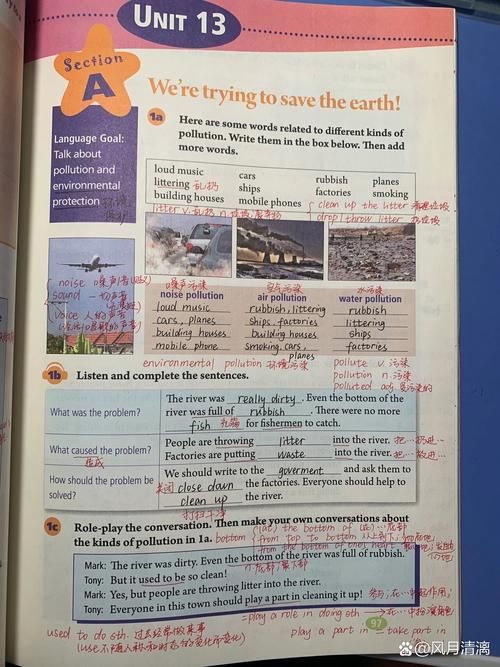 UNIT 13
Section
A
We're trying to save the earth!
Language Goal:
Talk about
pollution and
environmental
protection 环境
保护
1a Here are some words related to different kinds of
pollution. Write them in the box below. Then add
more words.
loud music cars rubbish planes
littering 乱扔 ships factories smoking
building houses mobile phones
clean up the litter 清理垃圾
litter v. 乱扔 n.
drop/throw litter 扔垃圾
noise 噪声
sound
voice 人的声音
噪声污染 空气污染 水污染
noise pollution air pollution water pollution
loud music rubbish, littering rubbish
cars, planes ships, factories littering
building houses building houses ships
mobile phone smoking, cars, factories
planes
environmental pollution 环境污染
pollute v. 污染
pollution n. 污染
polluted adj. 受污染的
1b Listen and complete the sentences.
What was the problem?
The river was really dirty. Even the bottom of the
river was full of rubbish. There were no more
fish for fishermen to catch.
What caused the problem?
造成
People are throwing litter into the river. 把…扔进…
Factories are putting waste into the river. 把…放进…
How should the problem be
solved?
We should write to the goverment and ask them to
关闭 close down the factories. Everyone should help to
clean up the river.
打扫干净
1c Role-play the conversation. Then make your own conversations about
the kinds of pollution in 1a.
bottom
(at) the bottom of
from top to bottom 从上到下
from the bottom of one's heart
Mark: The river was dirty. Even the bottom of the river was full of rubbish.
Tony: But it used to be so clean!
Mark: Yes, but people are throwing litter into the river.
Tony: Everyone in this town should play a part in cleaning it up!
参与; 在…中起作用
=play a role in doing sth → 在…中扮演角色
used to do sth. 过去经常做某事
play a part in = take part in
97
@风月清漓